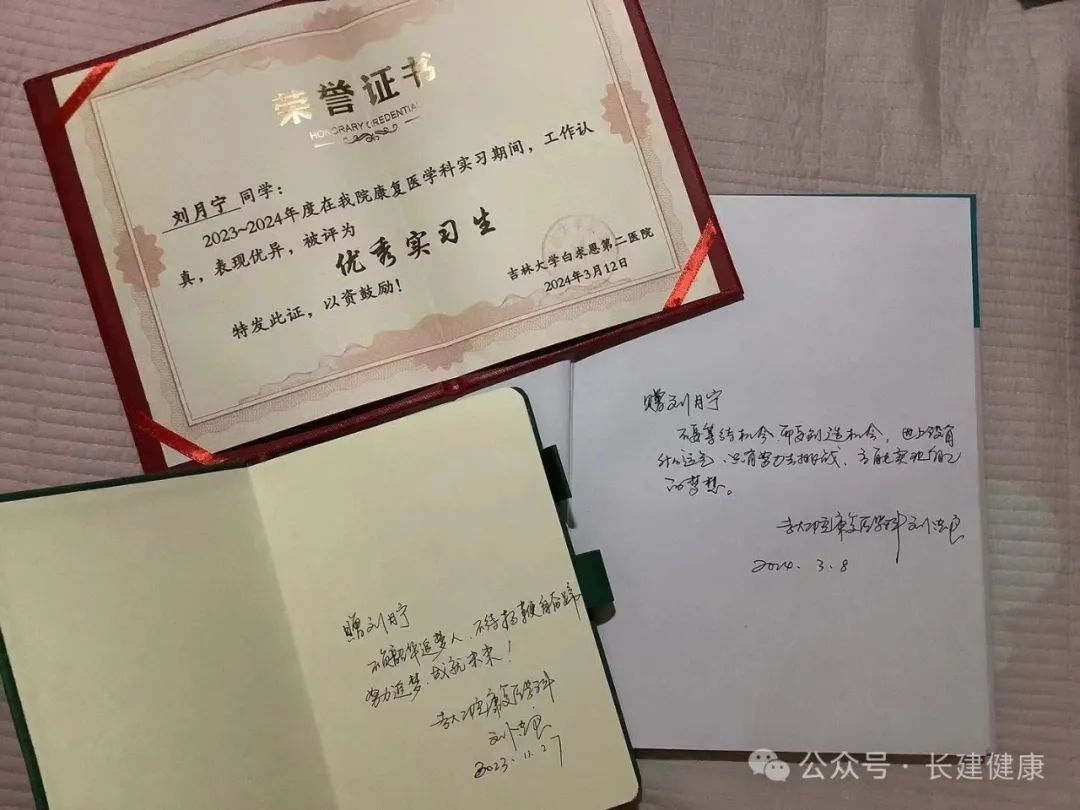 荣誉证书
HONORARY CREDENTIAL
刘月宁 同学：
2023~2024年度在我院康复医学科实习期间，工作认
真，表现优异，被评为
优秀实习生
特发此证，以资鼓励！
吉林大学白求恩第二医院
2024年3月12日
赠刘月宁
不要等待机会 而要创造机会，世上没有
什么运气、只有努力去挑战、方能实现自己
的梦想。
吉大二院康复医学科 刘忠良
2024. 3. 8
赠刘月宁
不负韶华追梦人、不待扬鞭自奋蹄
努力追梦、成就未来！
吉大二院康复医学科
刘忠良
2023. 11. 27
公众号 · 长建健康